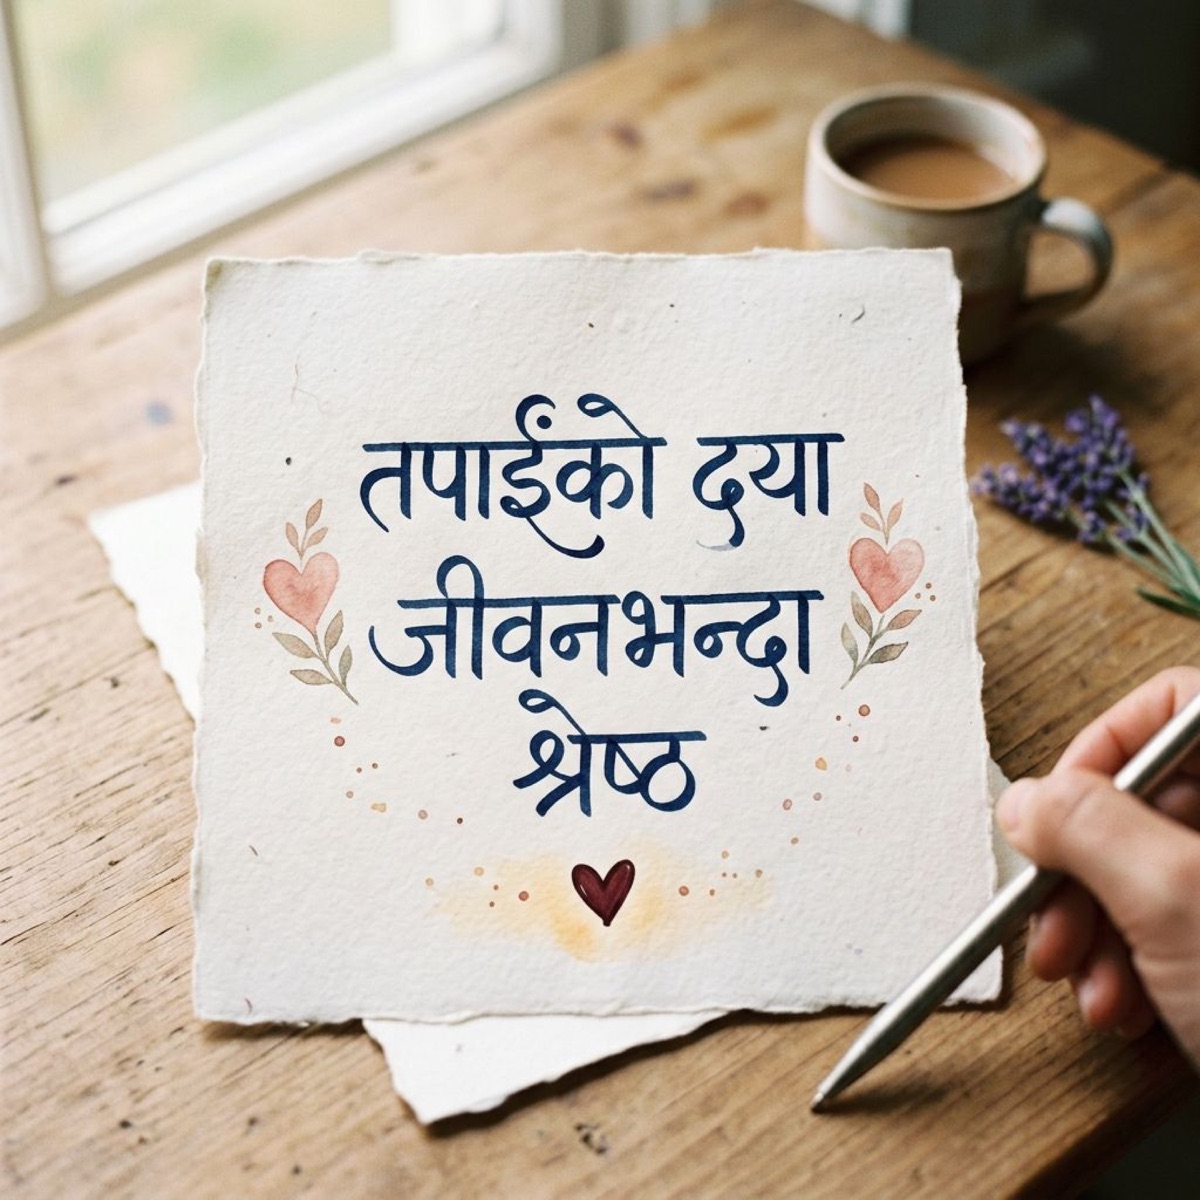 तपाईंको दया
जीवनभन्दा
श्रेष्ठ